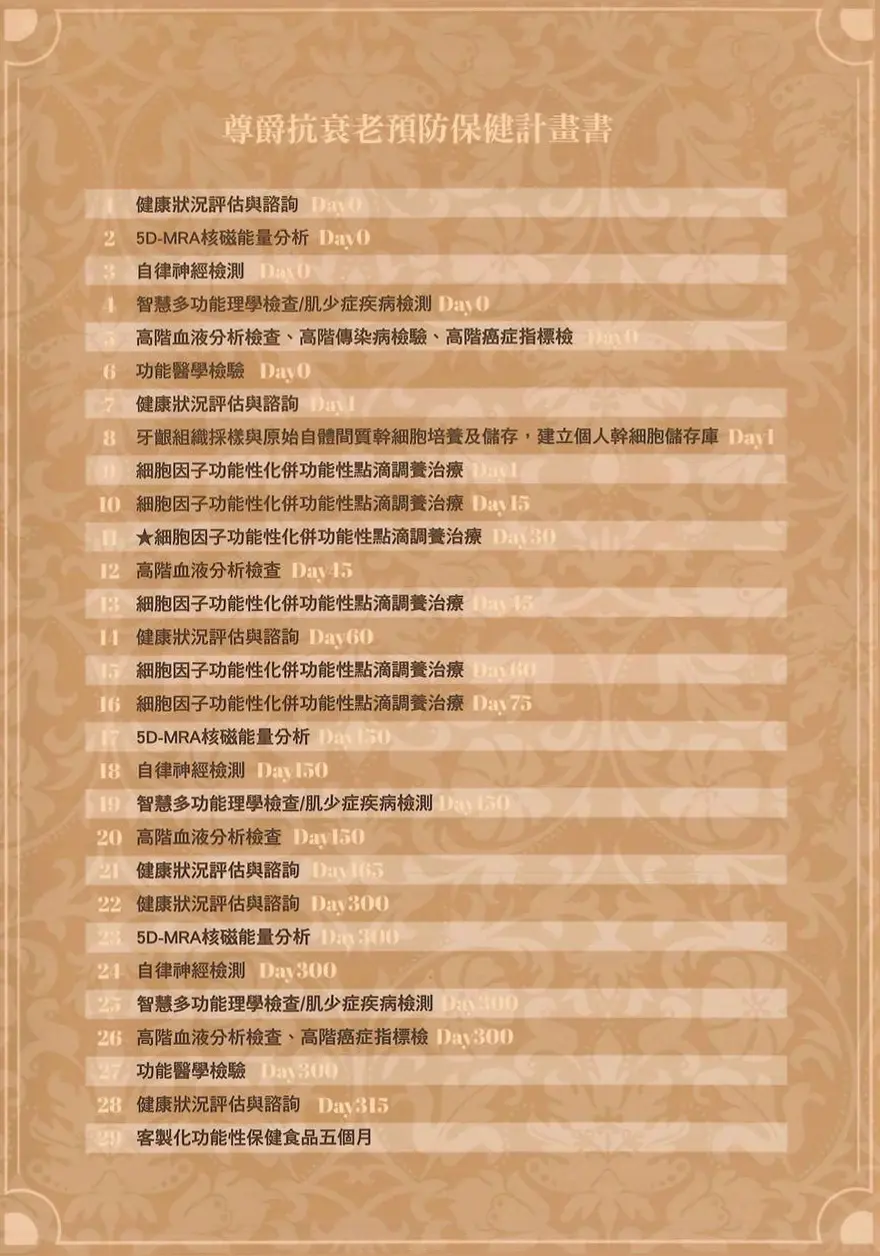 尊爵抗衰老預防保健計畫書
1 健康狀況評估與諮詢 Day0
2 5D-MRA核磁能量分析 Day0
3 自律神經檢測 Day0
4 智慧多功能理學檢查/肌少症疾病檢測 Day0
5 高階血液分析檢查、高階傳染病檢驗、高階癌症指標檢 Day0
6 功能醫學檢驗 Day0
7 健康狀況評估與諮詢 Day1
8 牙齦組織採樣與原始自體間質幹細胞培養及儲存，建立個人幹細胞儲存庫 Day1
9 細胞因子功能性化併功能性點滴調養治療 Day1
10 細胞因子功能性化併功能性點滴調養治療 Day15
11 ★細胞因子功能性化併功能性點滴調養治療 Day30
12 高階血液分析檢查 Day45
13 細胞因子功能性化併功能性點滴調養治療 Day45
14 健康狀況評估與諮詢 Day60
15 細胞因子功能性化併功能性點滴調養治療 Day60
16 細胞因子功能性化併功能性點滴調養治療 Day75
17 5D-MRA核磁能量分析 Day150
18 自律神經檢測 Day150
19 智慧多功能理學檢查/肌少症疾病檢測 Day150
20 高階血液分析檢查 Day150
21 健康狀況評估與諮詢 Day165
22 健康狀況評估與諮詢 Day300
23 5D-MRA核磁能量分析 Day300
24 自律神經檢測 Day300
25 智慧多功能理學檢查/肌少症疾病檢測 Day300
26 高階血液分析檢查、高階癌症指標檢 Day300
27 功能醫學檢驗 Day300
28 健康狀況評估與諮詢 Day315
29 客製化功能性保健食品五個月